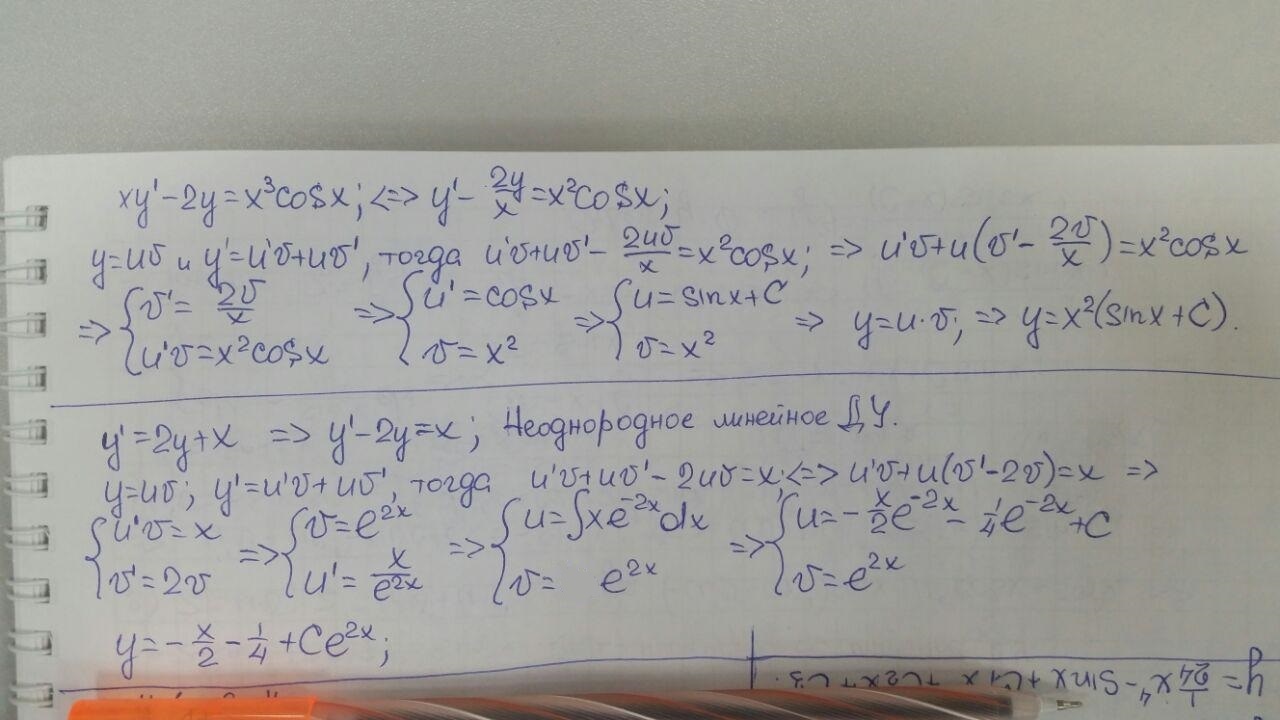 xy'-2y=x³cosx; <=> y'- 2y/x =x²cosx;
y=uv и y'=u'v+uv', тогда u'v+uv'- 2uv/x =x²cosx; => u'v+u(v'- 2v/x)=x²cosx
=> { v'= 2v/x ; u'v=x²cosx => { u'=cosx ; v=x² => { u=sinx+C ; v=x² => y=u·v; => y=x²(sinx+C).
y'=2y+x => y'-2y=x; Неоднородное линейное ДУ.
y=uv; y'=u'v+uv', тогда u'v+uv'-2uv=x; <=> u'v+u(v'-2v)=x =>
{ u'v=x ; v'=2v => { v=e^{2x} ; u'= x/e^{2x} => { u=∫xe^{-2x}dx ; v= e^{2x} => { u=- x/2 e^{-2x} - 1/4 e^{-2x}+C ; v=e^{2x}
y=- x/2 - 1/4 +Ce^{2x};
y= 1/24 x⁴-sinx+